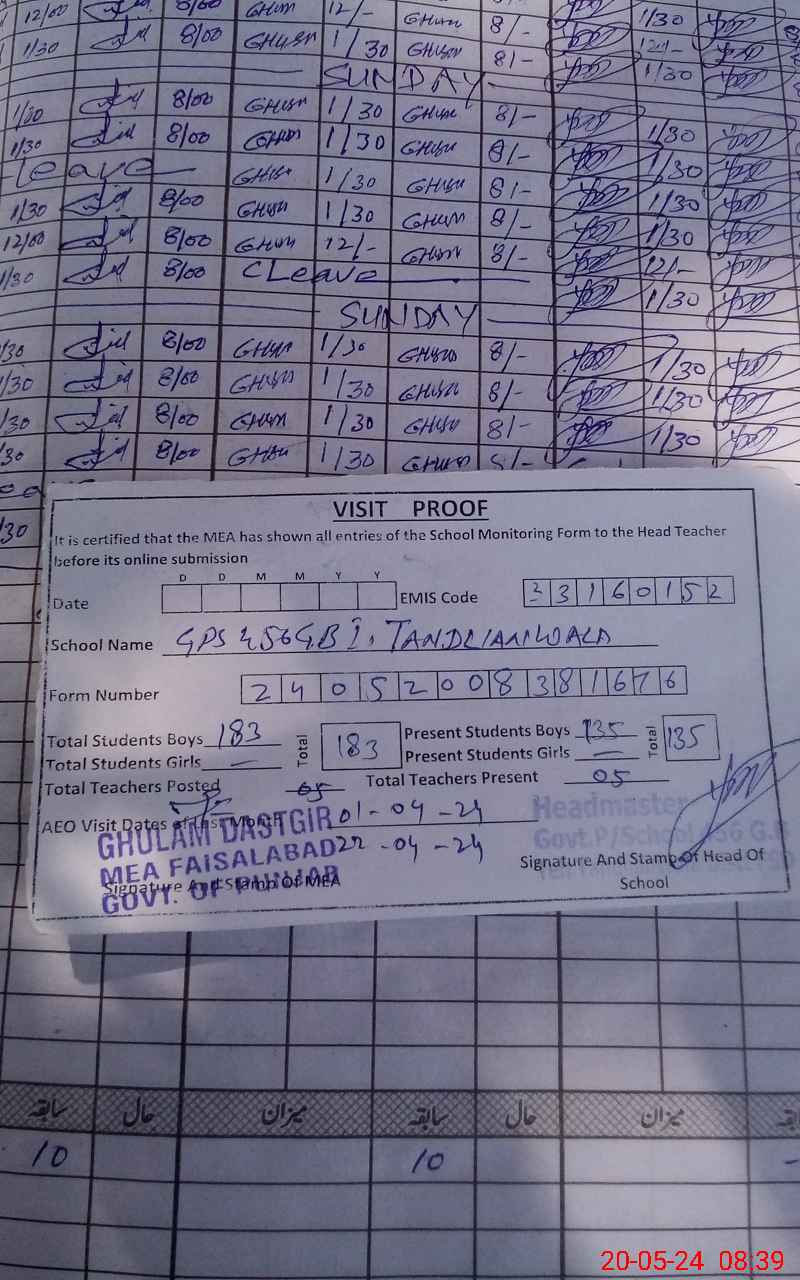 12/00 8/00 GHum 12/- GHum 8/- 1/30
1/30 8/00 GHusn 1/30 GHusn 8/- 12/-
SUNDAY 1/30
1/30 8/00 GHusn 1/30 GHusn 8/- 1/30
1/30 8/00 GHusn 1/30 GHusn 8/- 1/30
Leave GHusn 1/30 GHusn 8/- 1/30
1/30 8/00 GHusn 1/30 GHusn 8/- 1/30
12/00 8/00 GHusn 12/- GHusn 8/- 12/-
1/30 8/00 CLeave 1/30
SUNDAY
1/30 8/00 GHusn 1/30 GHusn 8/- 1/30
1/30 8/00 GHusn 1/30 GHusn 8/- 1/30
1/30 8/00 GHusn 1/30 GHusn 8/- 1/30
1/30 8/00 GHusn 1/30 GHusn 8/-
VISIT PROOF
It is certified that the MEA has shown all entries of the School Monitoring Form to the Head Teacher
before its online submission
D D M M Y Y
Date EMIS Code 33160152
School Name GPS 456 G.B I, TANDLIANWALA
Form Number 24052008381676
Total Students Boys 183 Total 183 Present Students Boys 135 Total 135
Total Students Girls — Present Students Girls —
Total Teachers Posted 05 Total Teachers Present 05
AEO Visit Dates of Last Month 01-04-24
22-04-24
GHULAM DASTGIR
MEA FAISALABAD
GOVT. OF PUNJAB
Signature And Stamp Of MEA
Headmaster
Govt.P/School 456 G.B
Signature And Stamp Of Head Of
School
سابقہ حال میزان سابقہ حال میزان
10 10
20-05-24 08:39